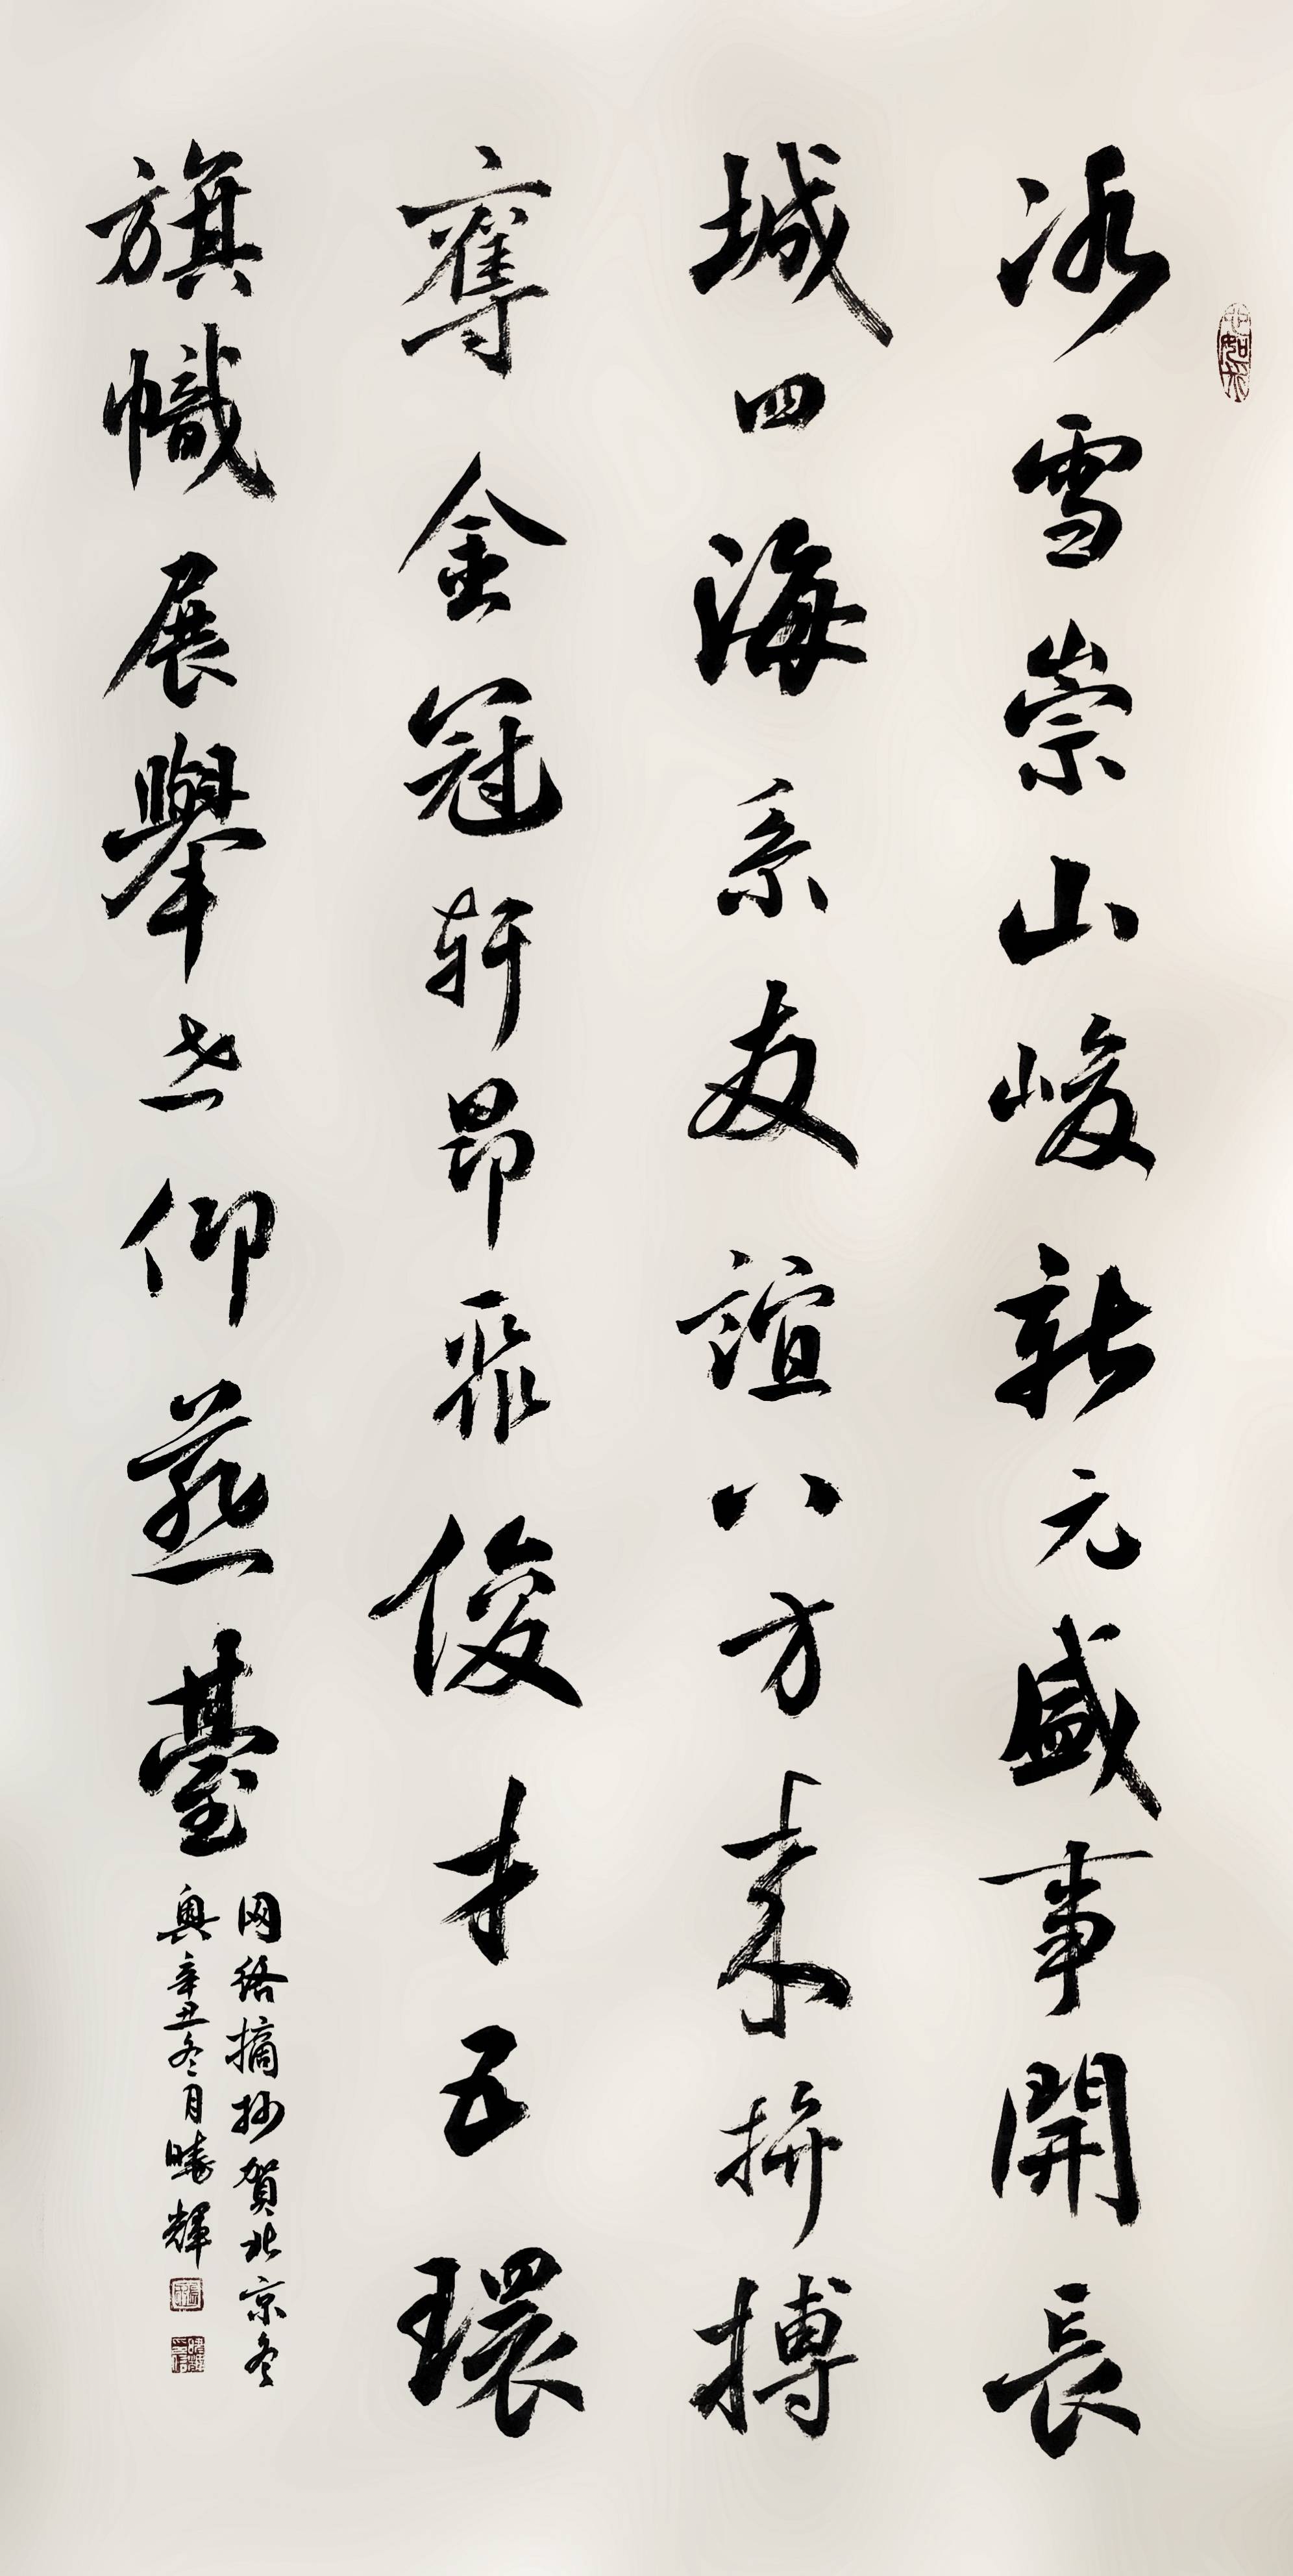 冰雪崇山峻新元盛事開長
城四海系友誼八方來拚搏
奪金冠軒昂飛俊才五環
旗幟展舉世仰燕臺
网络摘抄賀北京冬
奧辛丑冬月曉輝